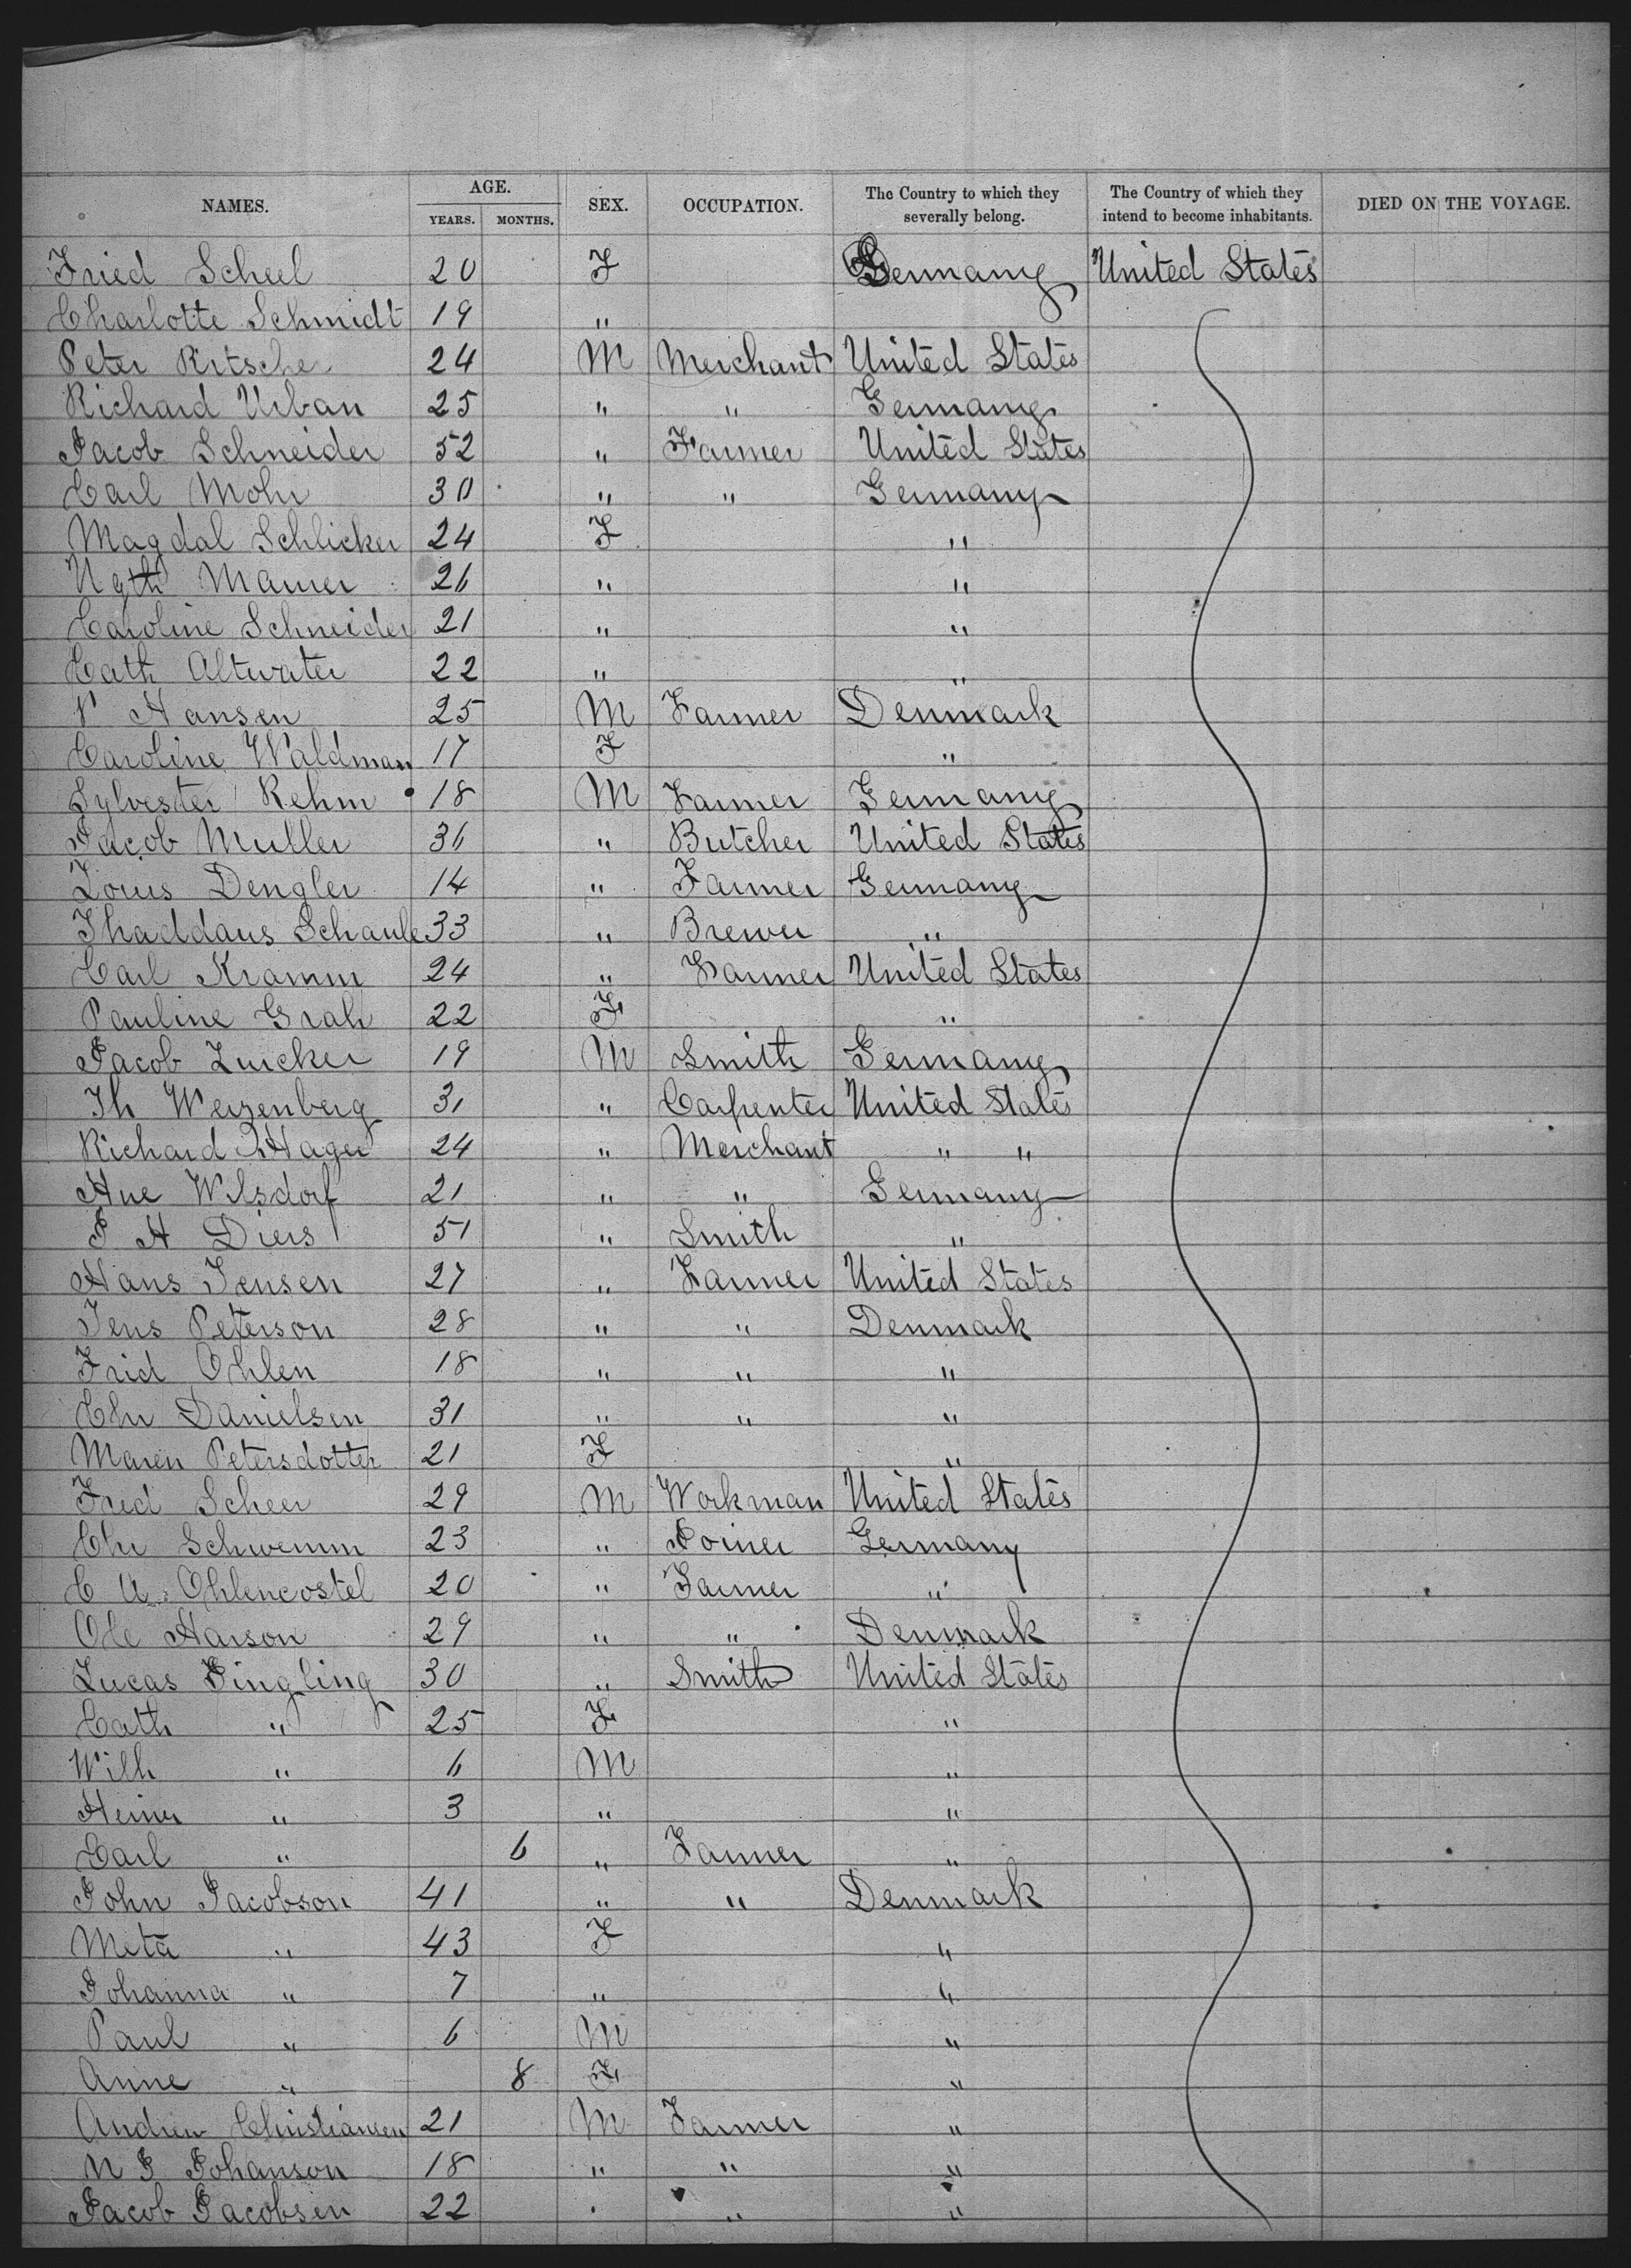 NAMES. AGE. YEARS. MONTHS. SEX. OCCUPATION. The Country to which they severally belong. The Country of which they intend to become inhabitants. DIED ON THE VOYAGE.
Fried Scheel 20 F Germany United States
Charlotte Schmidt 19 "
Peter Ritsche 24 M Merchant United States
Richard Urban 25 " " Germany
Jacob Schneider 52 " Farmer United States
Carl Mohr 30 " " Germany
Magdal Schlicker 24 F "
Maurer 26 " "
Caroline Schneider 21 " "
Cath Altvater 22 " "
P Hansen 25 M Farmer Denmark
Caroline Waldman 17 F "
Sylvester Rehm 18 M Farmer Germany
Jacob Muller 36 " Butcher United States
Louis Dengler 14 " Farmer Germany
Thaddaus Schaule 33 " Brewer "
Carl Kramm 24 " Farmer United States
Pauline Grah 22 F "
Jacob Zurcker 19 M Smith Germany
Th Weizenberg 31 " Carpenter United States
Richard Hager 24 " Merchant " "
Wilsdorf 21 " " Germany
J H Diers 51 " Smith "
Hans Jensen 27 " Farmer United States
Jens Peterson 28 " " Denmark
Frid Ohlen 18 " " "
Chr Danielsen 31 " " "
Maren Petersdotter 21 F "
Fred Scheer 29 M Workman United States
Chr Schwemm 23 " Joiner Germany
C A Ohlencostel 20 " Farmer "
Ole Harson 29 " " Denmark
Lucas Jingling 30 " Smith United States
Cath " 25 F "
Wilh " 6 M "
Heinr " 3 " "
Carl " 6 " Farmer "
John Jacobson 41 " " Denmark
Meta " 43 F "
Johanna " 7 " "
Paul " 6 M "
Anne " 8 F "
Andrew Christiansen 21 M Farmer "
N J Johanson 18 " " "
Jacob Jacobsen 22 " " "